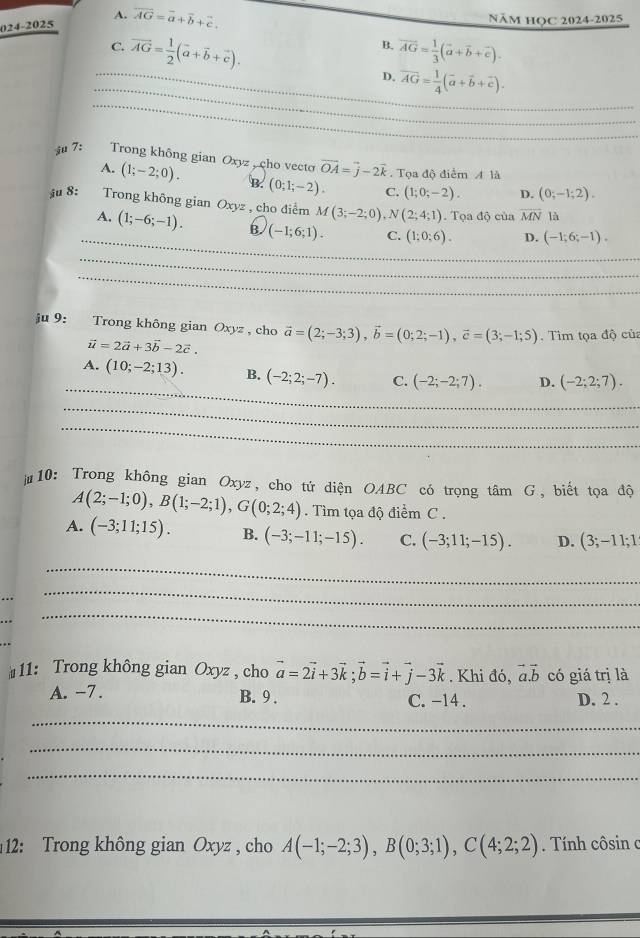 024-2025
NĂM HỌC 2024-2025
A. $\overrightarrow{AG}=\vec{a}+\vec{b}+\vec{c}$.
B. $\overrightarrow{AG}=\frac{1}{3}(\vec{a}+\vec{b}+\vec{c})$.
C. $\overrightarrow{AG}=\frac{1}{2}(\vec{a}+\vec{b}+\vec{c})$.
D. $\overrightarrow{AG}=\frac{1}{4}(\vec{a}+\vec{b}+\vec{c})$.
âu 7: Trong không gian Oxyz, cho vectơ $\overrightarrow{OA}=\vec{j}-2\vec{k}$. Tọa độ điểm A là
A. (1;-2;0). B. (0;1;-2). C. (1;0;-2). D. (0;-1;2).
âu 8: Trong không gian Oxyz, cho điểm M(3;-2;0), N(2;4;1). Tọa độ của $\overrightarrow{MN}$ là
A. (1;-6;-1). B. (-1;6;1). C. (1;0;6). D. (-1;6;-1).
âu 9: Trong không gian Oxyz, cho $\vec{a}=(2;-3;3)$, $\vec{b}=(0;2;-1)$, $\vec{c}=(3;-1;5)$. Tìm tọa độ của
$\vec{u}=2\vec{a}+3\vec{b}-2\vec{c}$.
A. (10;-2;13). B. (-2;2;-7). C. (-2;-2;7). D. (-2;2;7).
u 10: Trong không gian Oxyz, cho tứ diện OABC có trọng tâm G, biết tọa độ
A(2;-1;0), B(1;-2;1), G(0;2;4). Tìm tọa độ điểm C.
A. (-3;11;15). B. (-3;-11;-15). C. (-3;11;-15). D. (3;-11;1
11: Trong không gian Oxyz, cho $\vec{a}=2\vec{i}+3\vec{k}$; $\vec{b}=\vec{i}+\vec{j}-3\vec{k}$. Khi đó, $\vec{a}.\vec{b}$ có giá trị là
A. -7. B. 9. C. -14. D. 2.
12: Trong không gian Oxyz, cho A(-1;-2;3), B(0;3;1), C(4;2;2). Tính côsin c